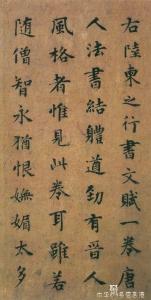 右陸柬之行書文賦一卷唐
人法書結體遒勁有晉人
風格者惟見此卷耳雖若
隨僧智永猶恨嫵媚太多